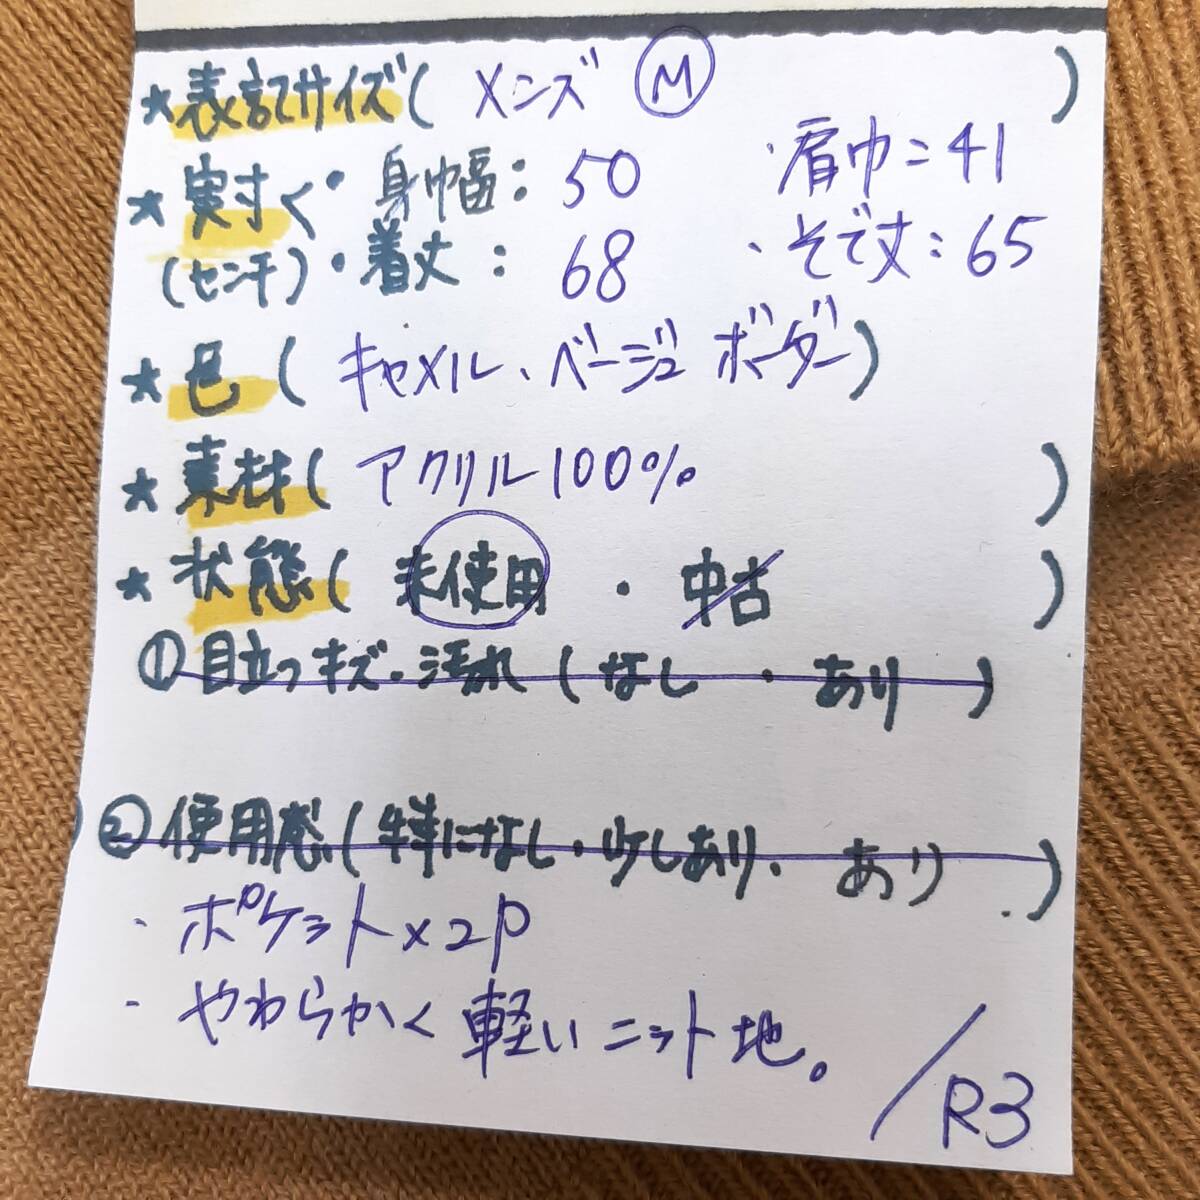 ★表記サイズ( メンズ Ⓜ )
★実寸く・身幅: 50 ・肩巾=41
(センチ)・着丈: 68 ・そで丈:65
★色( キャメル、ベージュ ボーダー)
★素材( アクリル100% )
★状態( 未使用 ・ 中古 )
①目立つキズ・汚れ( なし ・ あり )
②使用感(特になし・少しあり・ あり )
・ポケット×2P
・やわらかく 軽い ニット地。
/R3